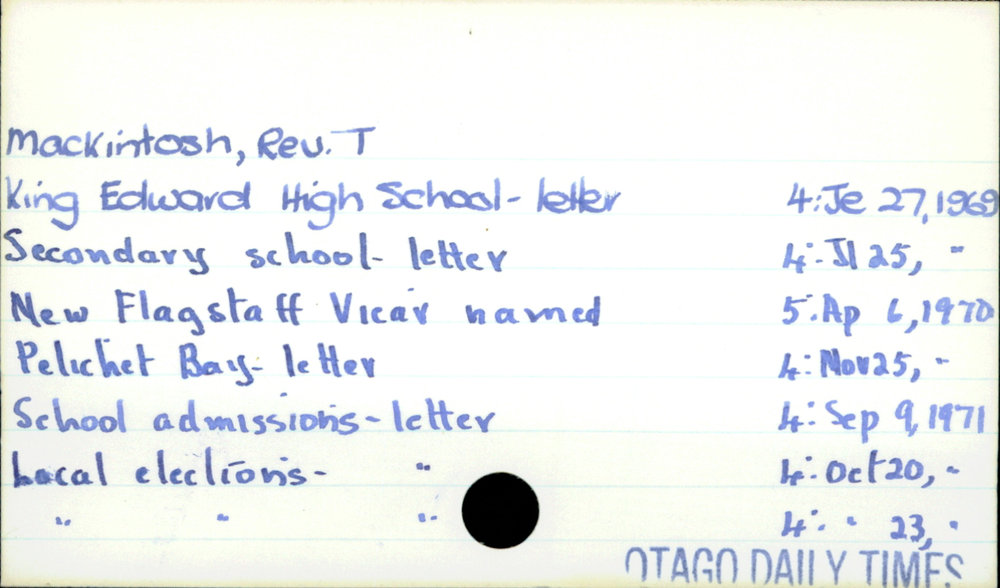 Mackintosh, Rev. T
King Edward High School - letter 4: Je 27, 1969
Secondary school - letter 4: Jl 25, "
New Flagstaff Vicar named 5: Ap 6, 1970
Pelichet Bay - letter 4: Nov 25, "
School admissions - letter 4: Sep 9, 1971
Local elections - " 4: Oct 20, "
" " " 4: " 23, "
OTAGO DAILY TIMES